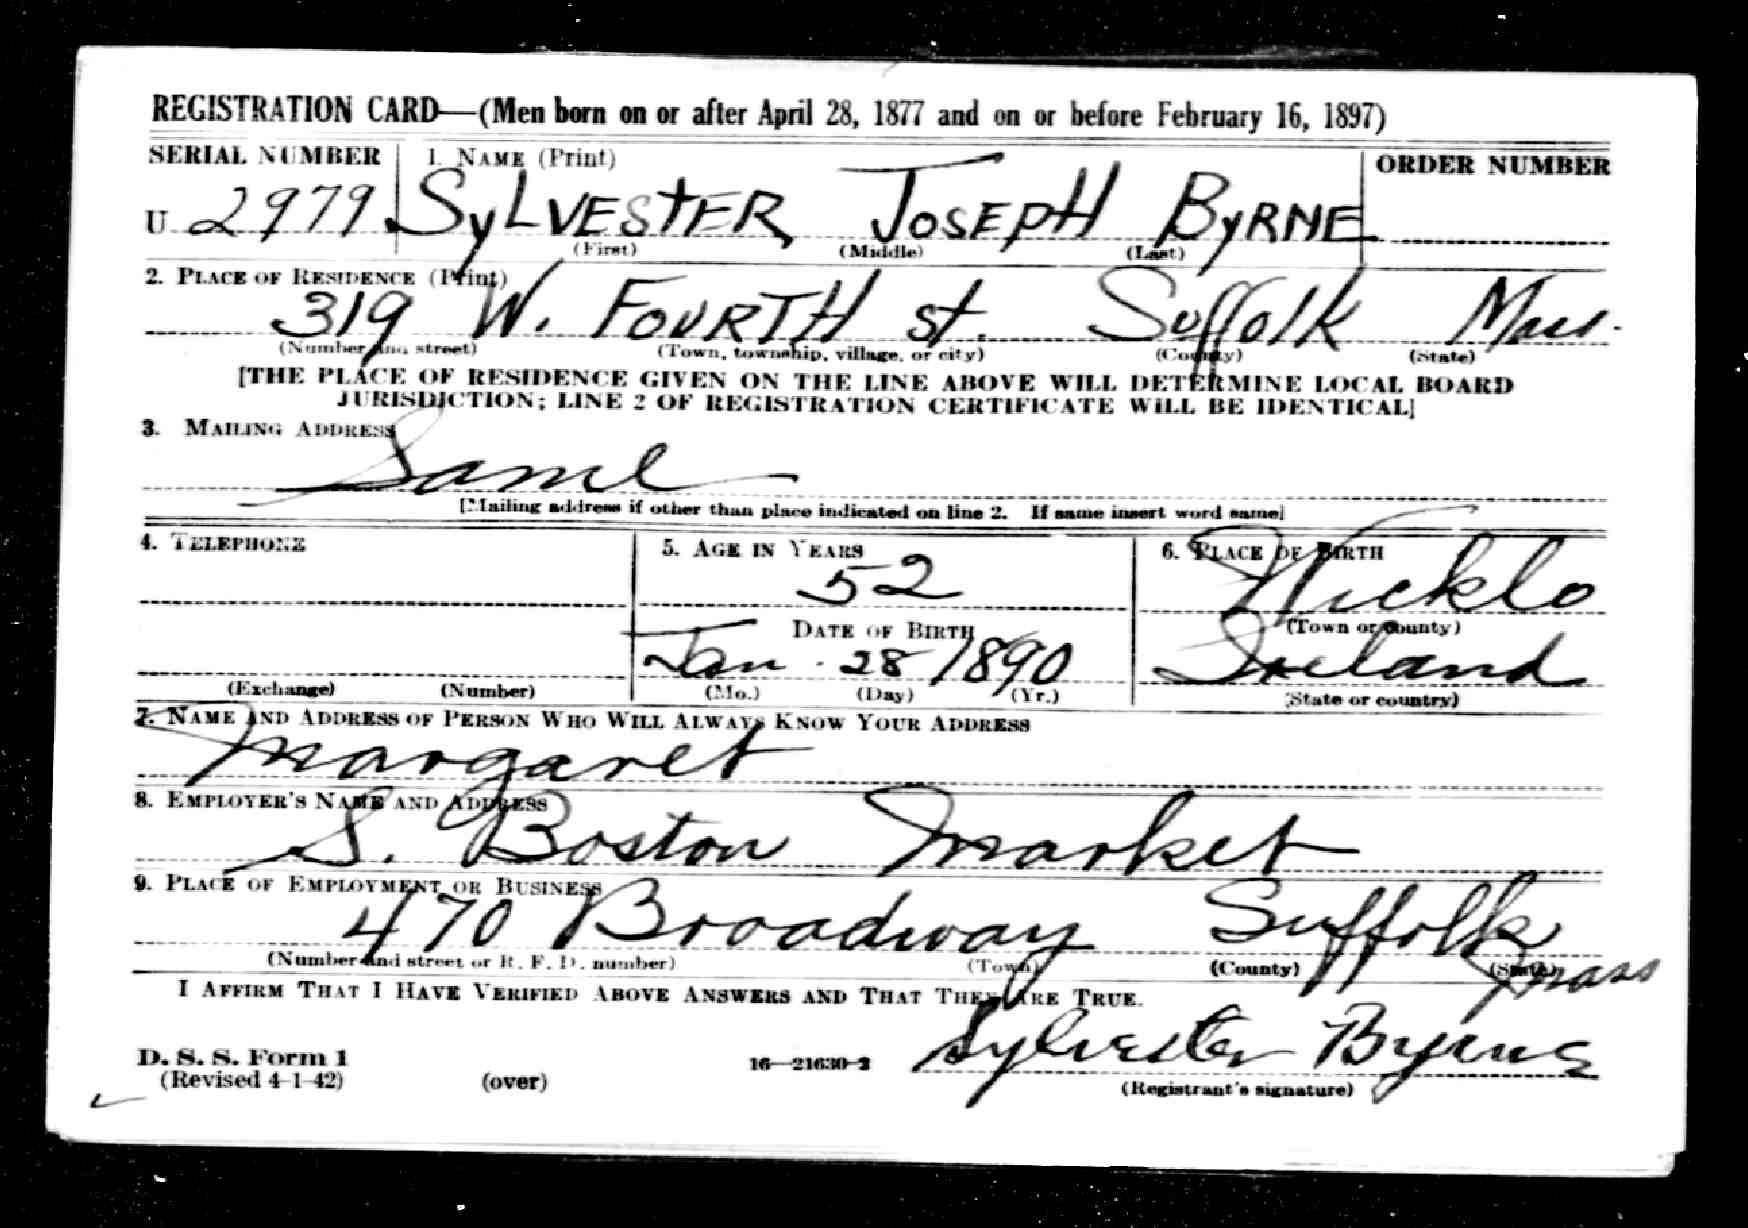 REGISTRATION CARD—(Men born on or after April 28, 1877 and on or before February 16, 1897)
SERIAL NUMBER 1. NAME (Print) ORDER NUMBER
U 2979 SyLVESTER JOSEPH ByRNE
(First) (Middle) (Last)
2. PLACE OF RESIDENCE (Print)
319 W. FOURTH st. Suffolk Mass.
(Number and street) (Town, township, village, or city) (County) (State)
[THE PLACE OF RESIDENCE GIVEN ON THE LINE ABOVE WILL DETERMINE LOCAL BOARD
JURISDICTION; LINE 2 OF REGISTRATION CERTIFICATE WILL BE IDENTICAL]
3. MAILING ADDRESS
Same
[Mailing address if other than place indicated on line 2. If same insert word same]
4. TELEPHONE 5. AGE IN YEARS 6. PLACE OF BIRTH
52 Wicklo
DATE OF BIRTH (Town or county)
Jan. 28 1890 Ireland
(Exchange) (Number) (Mo.) (Day) (Yr.) (State or country)
7. NAME AND ADDRESS OF PERSON WHO WILL ALWAYS KNOW YOUR ADDRESS
Margaret
8. EMPLOYER'S NAME AND ADDRESS
S. Boston Market
9. PLACE OF EMPLOYMENT OR BUSINESS
470 Broadway Suffolk Mass
(Number and street or R. F. D. number) (Town) (County) (State)
I AFFIRM THAT I HAVE VERIFIED ABOVE ANSWERS AND THAT THEY ARE TRUE.
Sylvester Byrne
D. S. S. Form 1
(Revised 4-1-42) (over) 16—21630-2 (Registrant's signature)